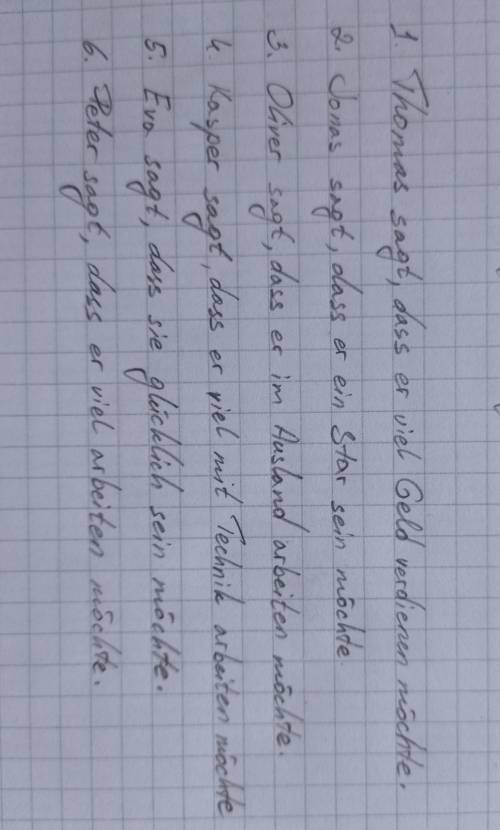 1. Thomas sagt, dass er viel Geld verdienen möchte.
2. Jonas sagt, dass er ein Star sein möchte.
3. Oliver sagt, dass er im Ausland arbeiten möchte.
4. Kasper sagt, dass er viel mit Technik arbeiten möchte
5. Eva sagt, dass sie glücklich sein möchte.
6. Peter sagt, dass er viel arbeiten möchte.